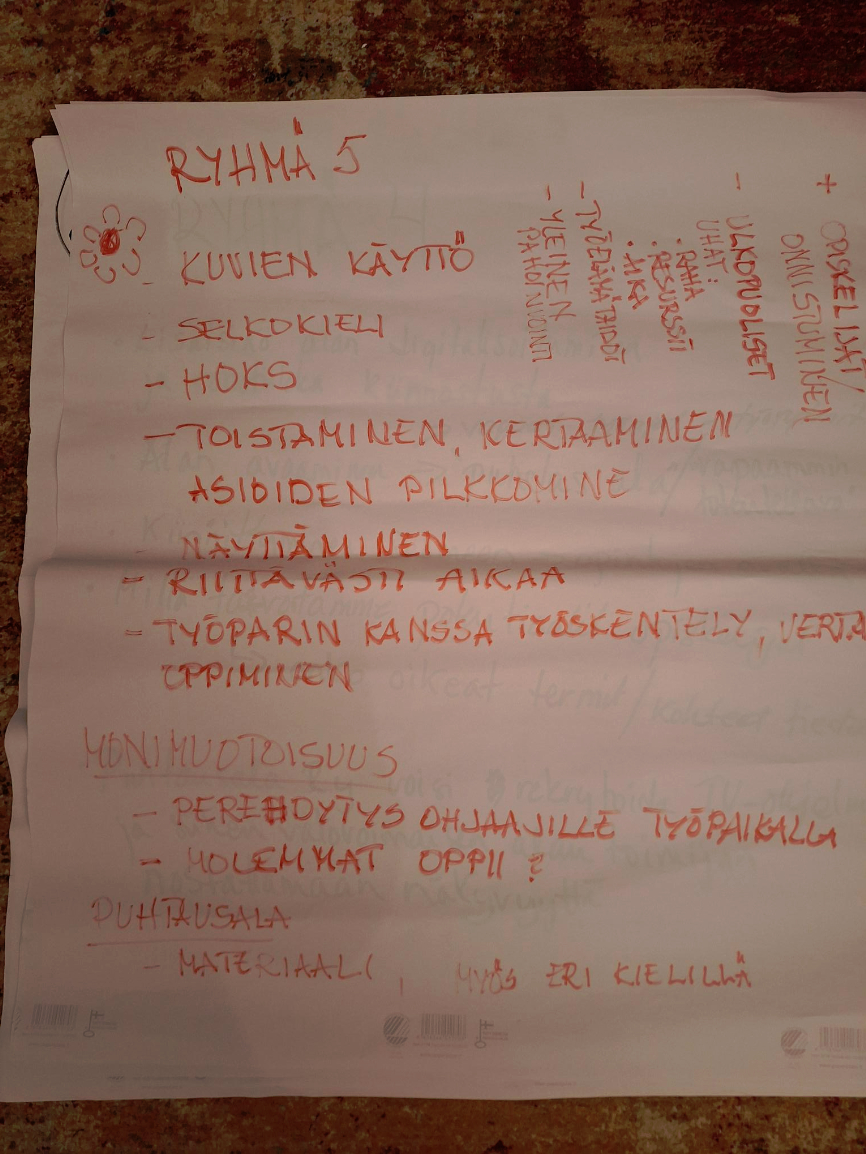 RYHMÄ 5
- KUVIEN KÄYTTÖ
- SELKOKIELI
- HOKS
- TOISTAMINEN, KERTAAMINEN
ASIOIDEN PILKKOMINE
- NÄYTTÄMINEN
- RIITTÄVÄSTI AIKAA
- TYÖPARIN KANSSA TYÖSKENTELY, VERTA
OPPIMINEN
MONIMUOTOISUUS
- PEREHDYTYS OHJAAJILLE TYÖPAIKALLA
- MOLEMMAT OPPII ?
PUHTAUSALA
- MATERIAALI, MYÖS ERI KIELILLÄ
+ OPISKELIJAT/
ONNISTUMINEN
- ULKOPUOLISET
UHAT:
• RAHA
• RESURSSIT
• AIKA
- TYÖELÄMÄTAIDOT
- YLEINEN
PAHOINVOINTI